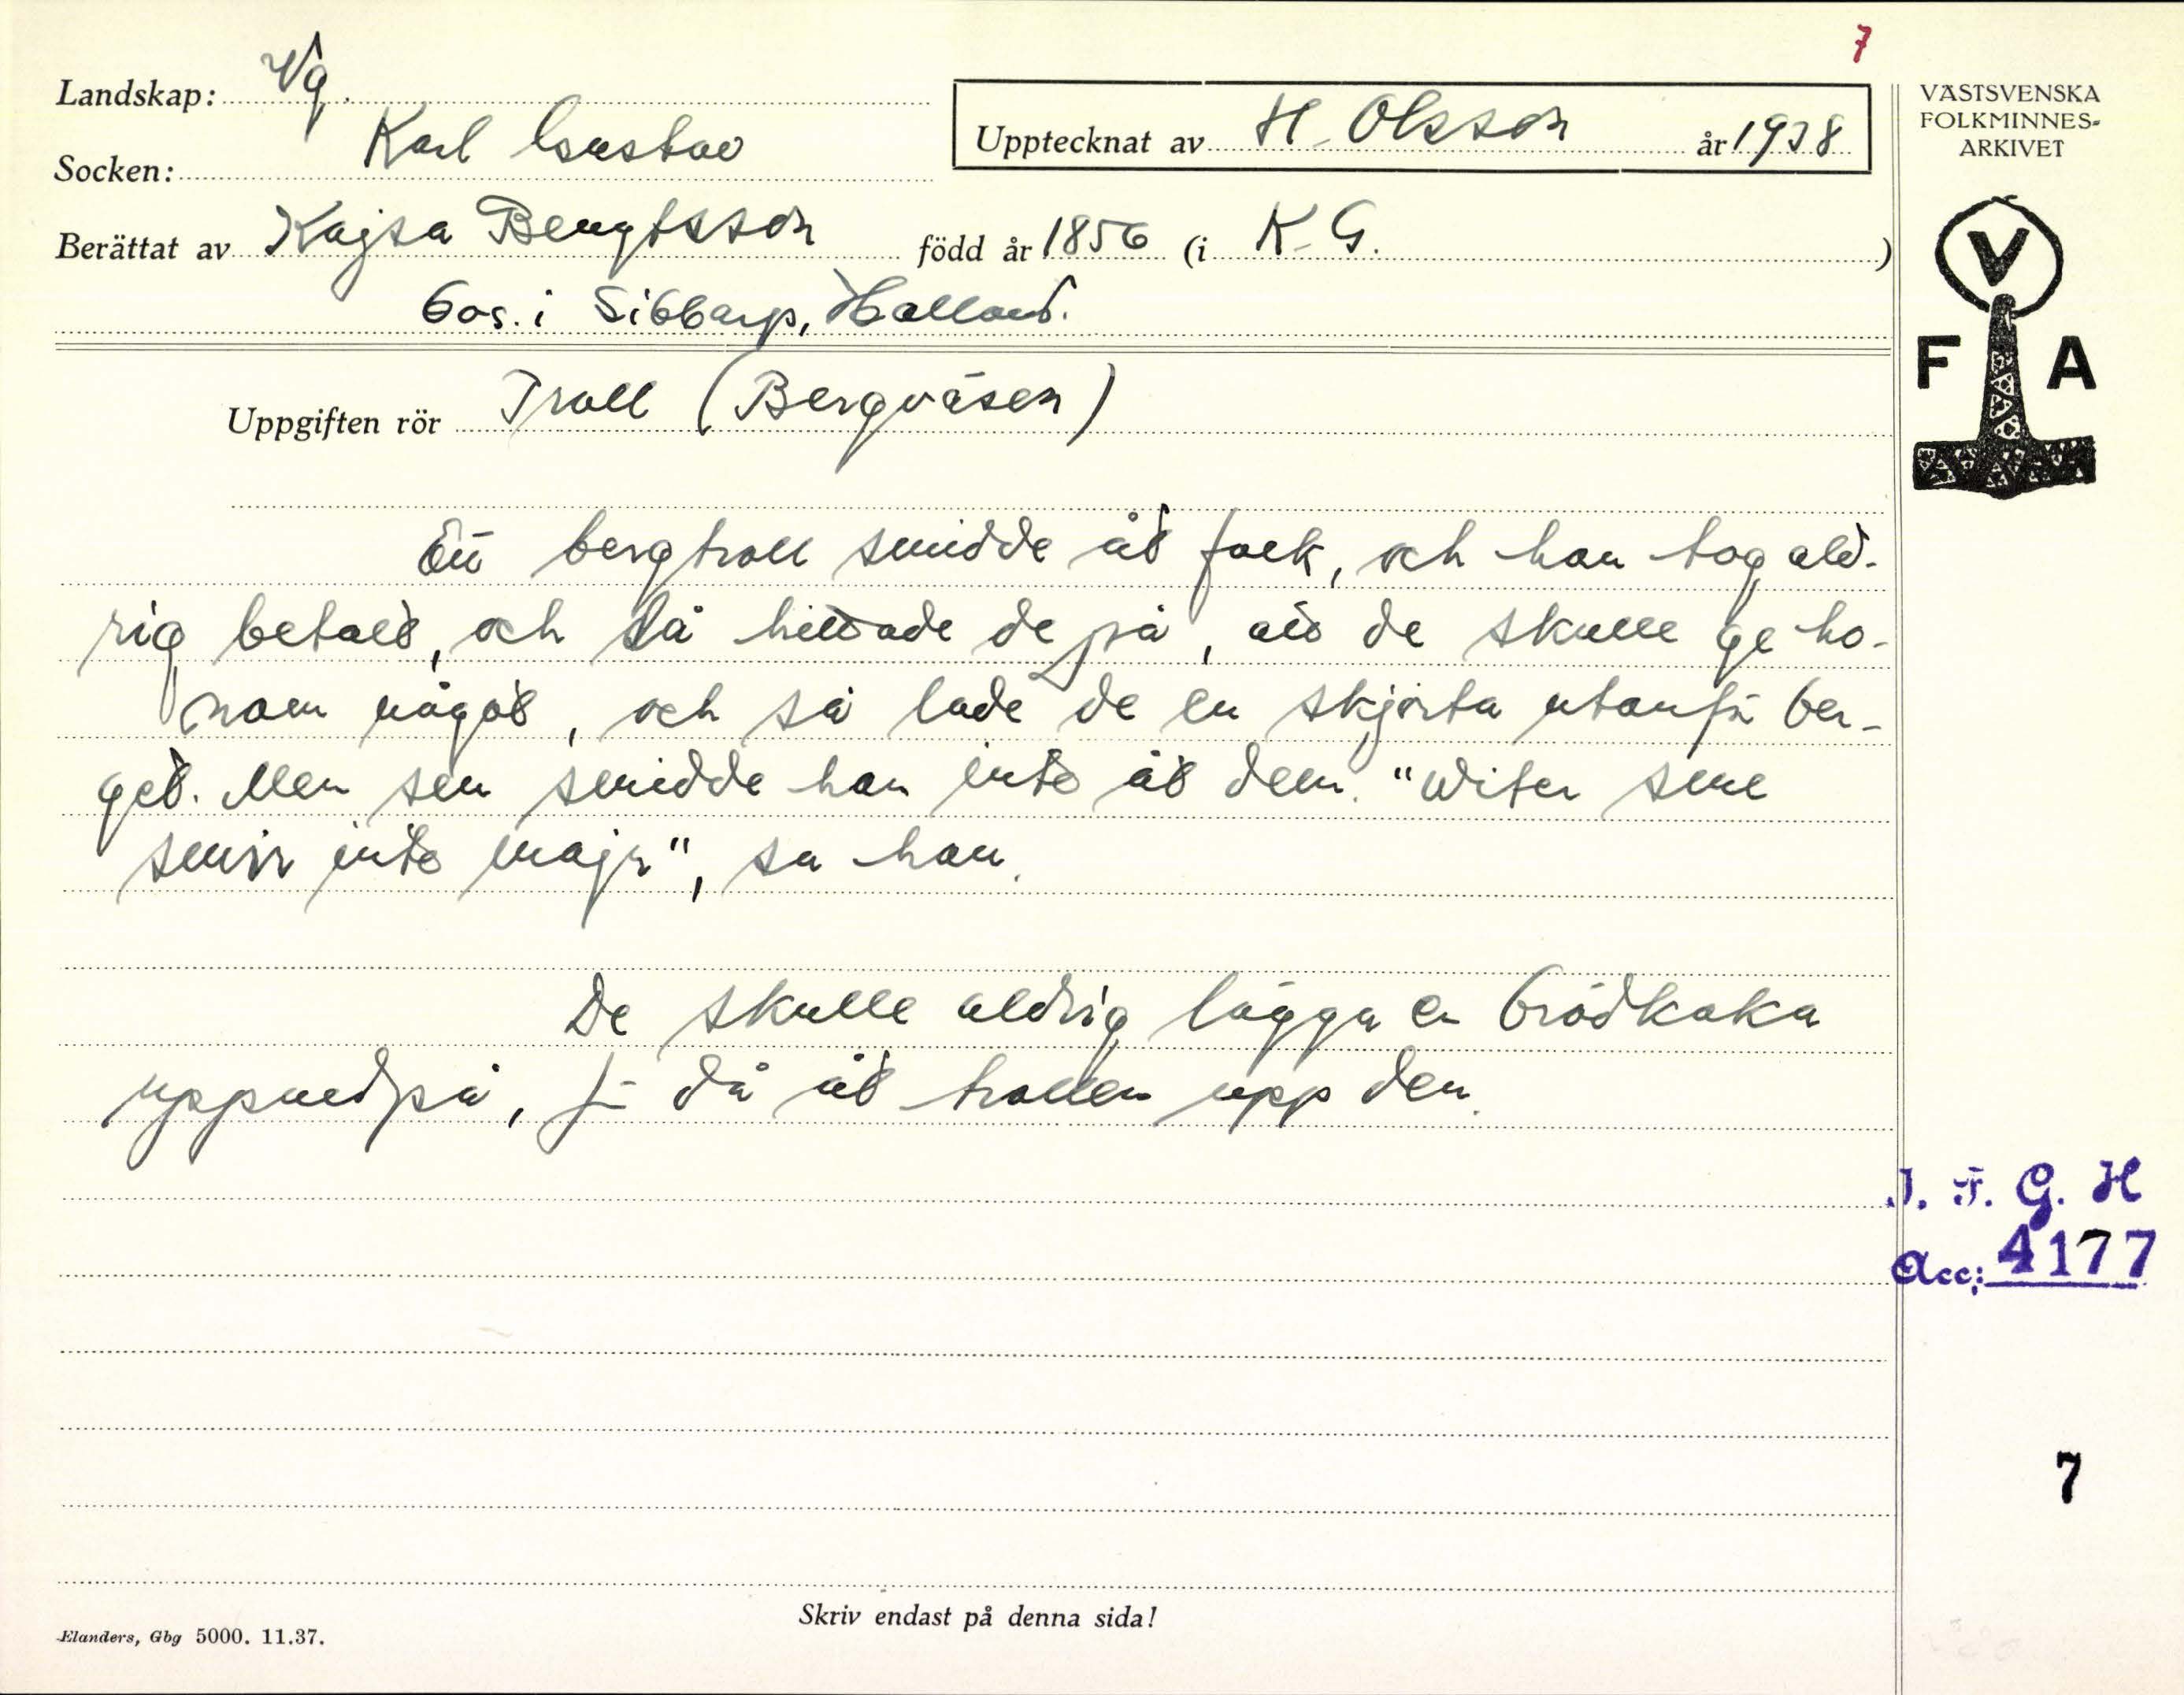 7
Landskap: Vg.
VÄSTSVENSKA
FOLKMINNES-
ARKIVET
Socken: Karl Gustav
Upptecknat av H. Olsson år 1938
Berättat av Kajsa Bengtsson född år 1856 (i K. G. )
bos. i Sibbarp, Halland.
V
F A
Uppgiften rör Troll (Bergväsen)
Ett bergtroll smidde åt folk, och han tog ald-
rig betalt, och så hittade de på, att de skulle ge ho-
nom något, och så lade de en skjorta utanför ber-
get. Men sen smidde han inte åt dem. "Witer sme
smir inte majr", sa han.
De skulle aldrig lägga en brödkaka
uppnedpå, för då åt trollen upp den.
I. F. G. H
Acc: 4177
7
Skriv endast på denna sida!
Elanders, Gbg 5000. 11.37.